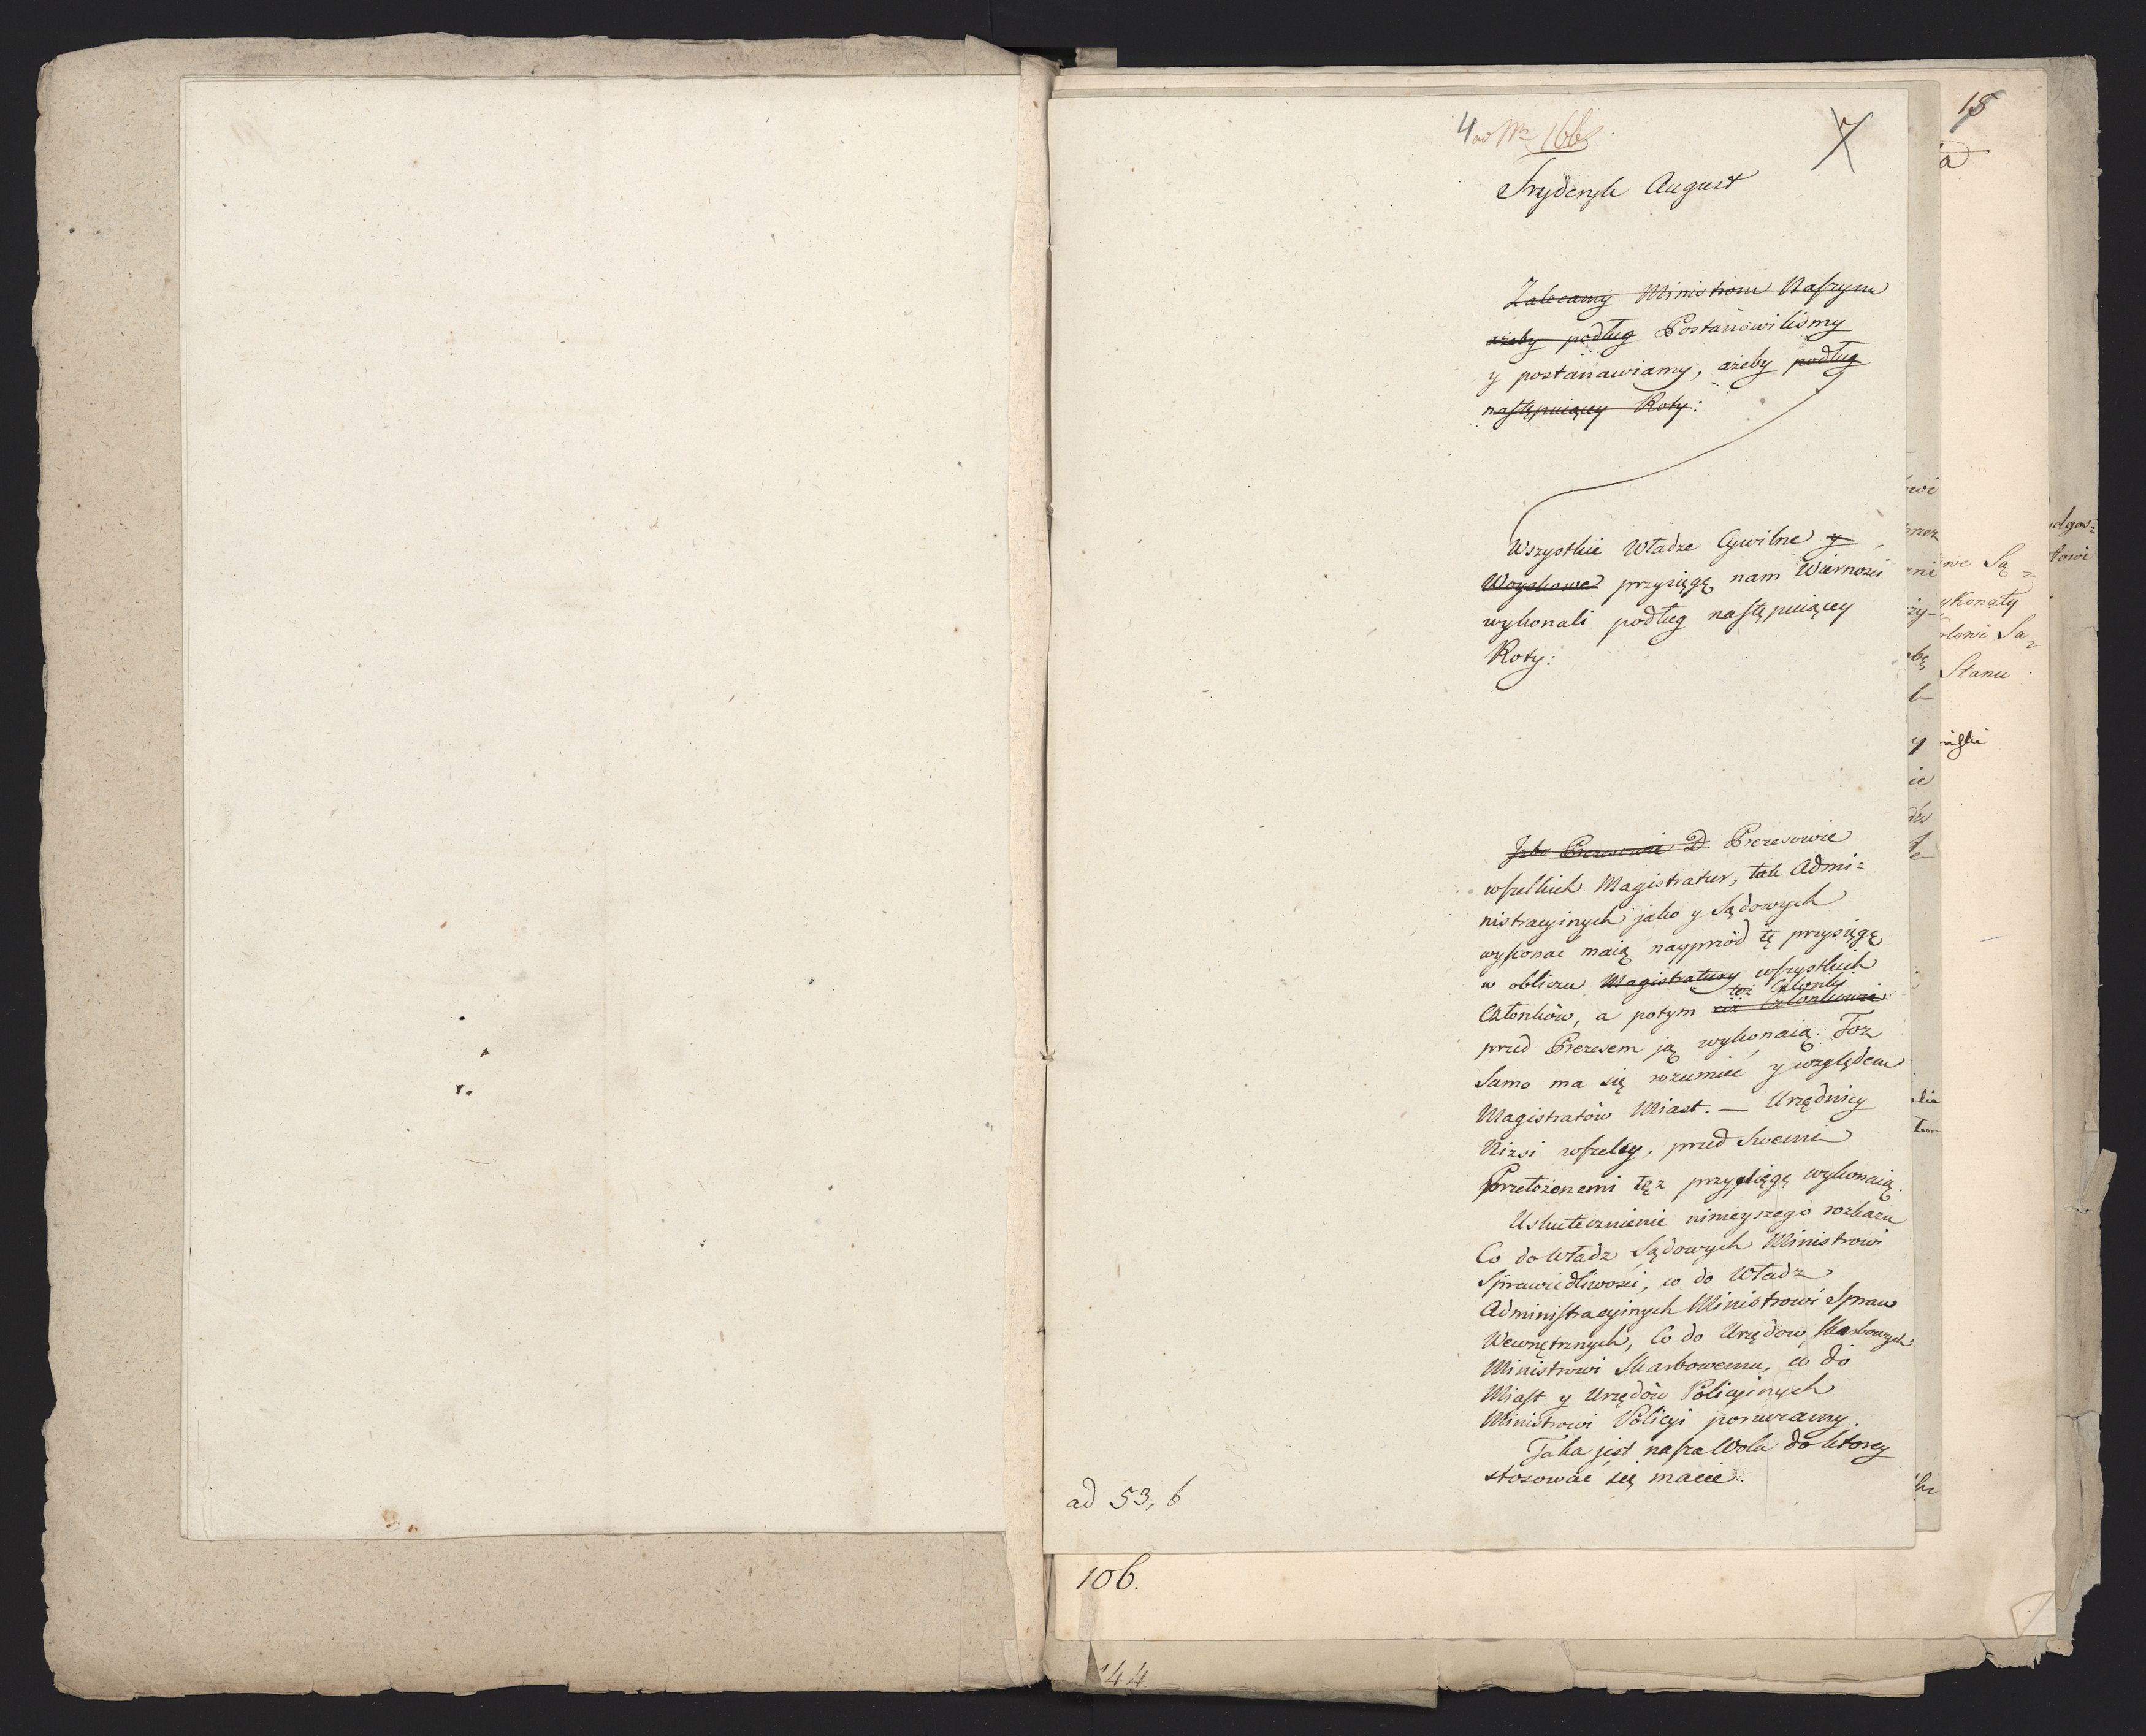 4 ad Nr 166
7
Fryderyk August
Zalecamy Ministrom Naszym
ażeby podług Postanowilismy
y postanawiamy, ażeby podług
następuiącey Roty:
Wszystkie Władze Cywilne y
Woyskowe przysięgę nam Wierności
wykonali podług następuiącey
Roty:
Prezesowie D Prezesowie
wszelkich Magistratur, tak Admi=
nistracyinych jako y Sądowych
wykonac maią nayprzód tę przysięgę
w obliczu Magistratury wszystkich
też Członki
Członków, a potym ciż Członkowie
przed Prezesem ją wykonaią. Toz
Samo ma się rozumieć y względem
Magistratów Miast. — Urzędnicy
Nizsi wszelcy, przed Swemi
Przełożonemi tęż przysięgę wykonaią.
Uskutecznienie ninieyszego rozkazu
Co do Władz Sądowych Ministrowi
Sprawiedliwości, co do Władz
Administracyinych Ministrowi Spraw
Wewnętrznych, Co do Urzędow Skarbowych
Ministrowi Skarbowemu, co do
Miast y Urzędów Policyinych
Ministrowi Policyi poruczamy.
Taka jest nasza Wola do ktorey
stosować się macie.
ad 53, b
106.
144
18
a
owi
przez
we Są
ykonały
Stanu
y
ie